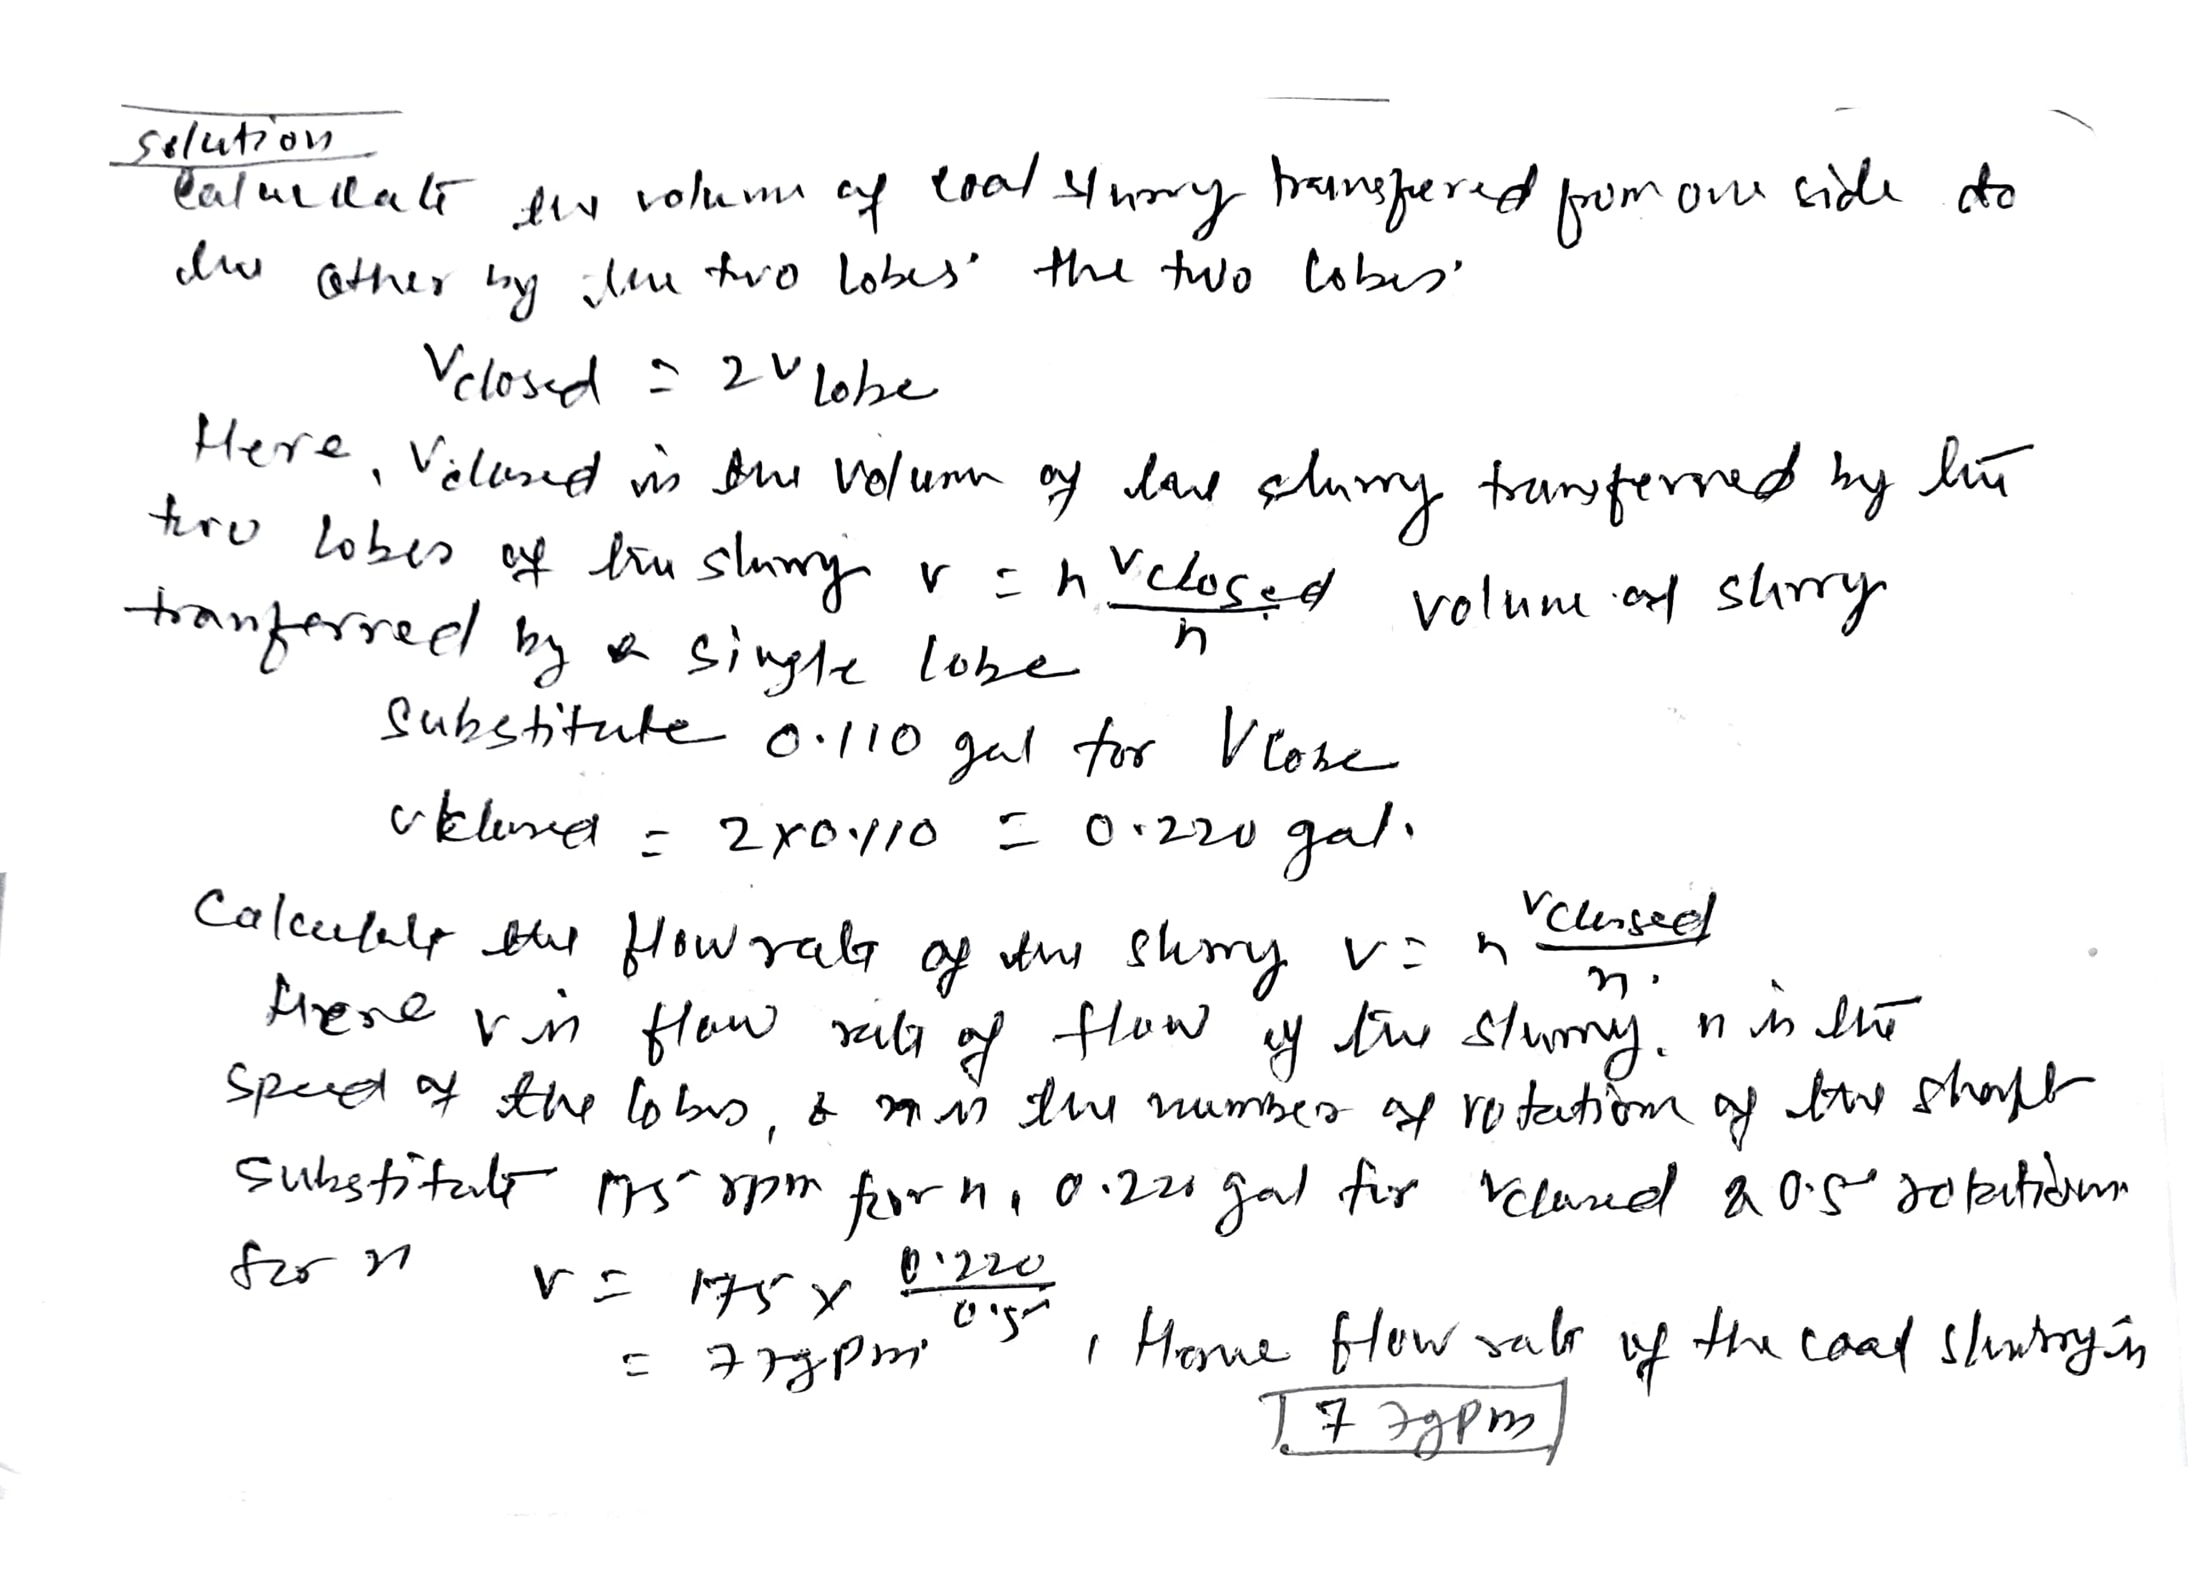 solution
Calculate the volume of coal slurry transfered from one side to
the other by the two lobes. the two lobes.
Vclosed = 2 V lobe
Here, Vclosed is the volume of the slurry transferred by the
two lobes of the slurry v = n Vclosed / n volume of slurry
tranferred by a single lobe
Substitute 0.110 gal for Vlobe
Vclosed = 2x0.110 = 0.220 gal.
Calculate the flow rate of the slurry v = n Vclosed / n.
Here v is flow rate of flow of the slurry. n is the
speed of the lobes, & n is the number of rotation of the shaft
substitute 175 rpm for n, 0.220 gal for Vclosed & 0.5 rotations
for n v = 175 x 0.220 / 0.5
= 77gpm, flow rate of the coal slurry is
77gpm